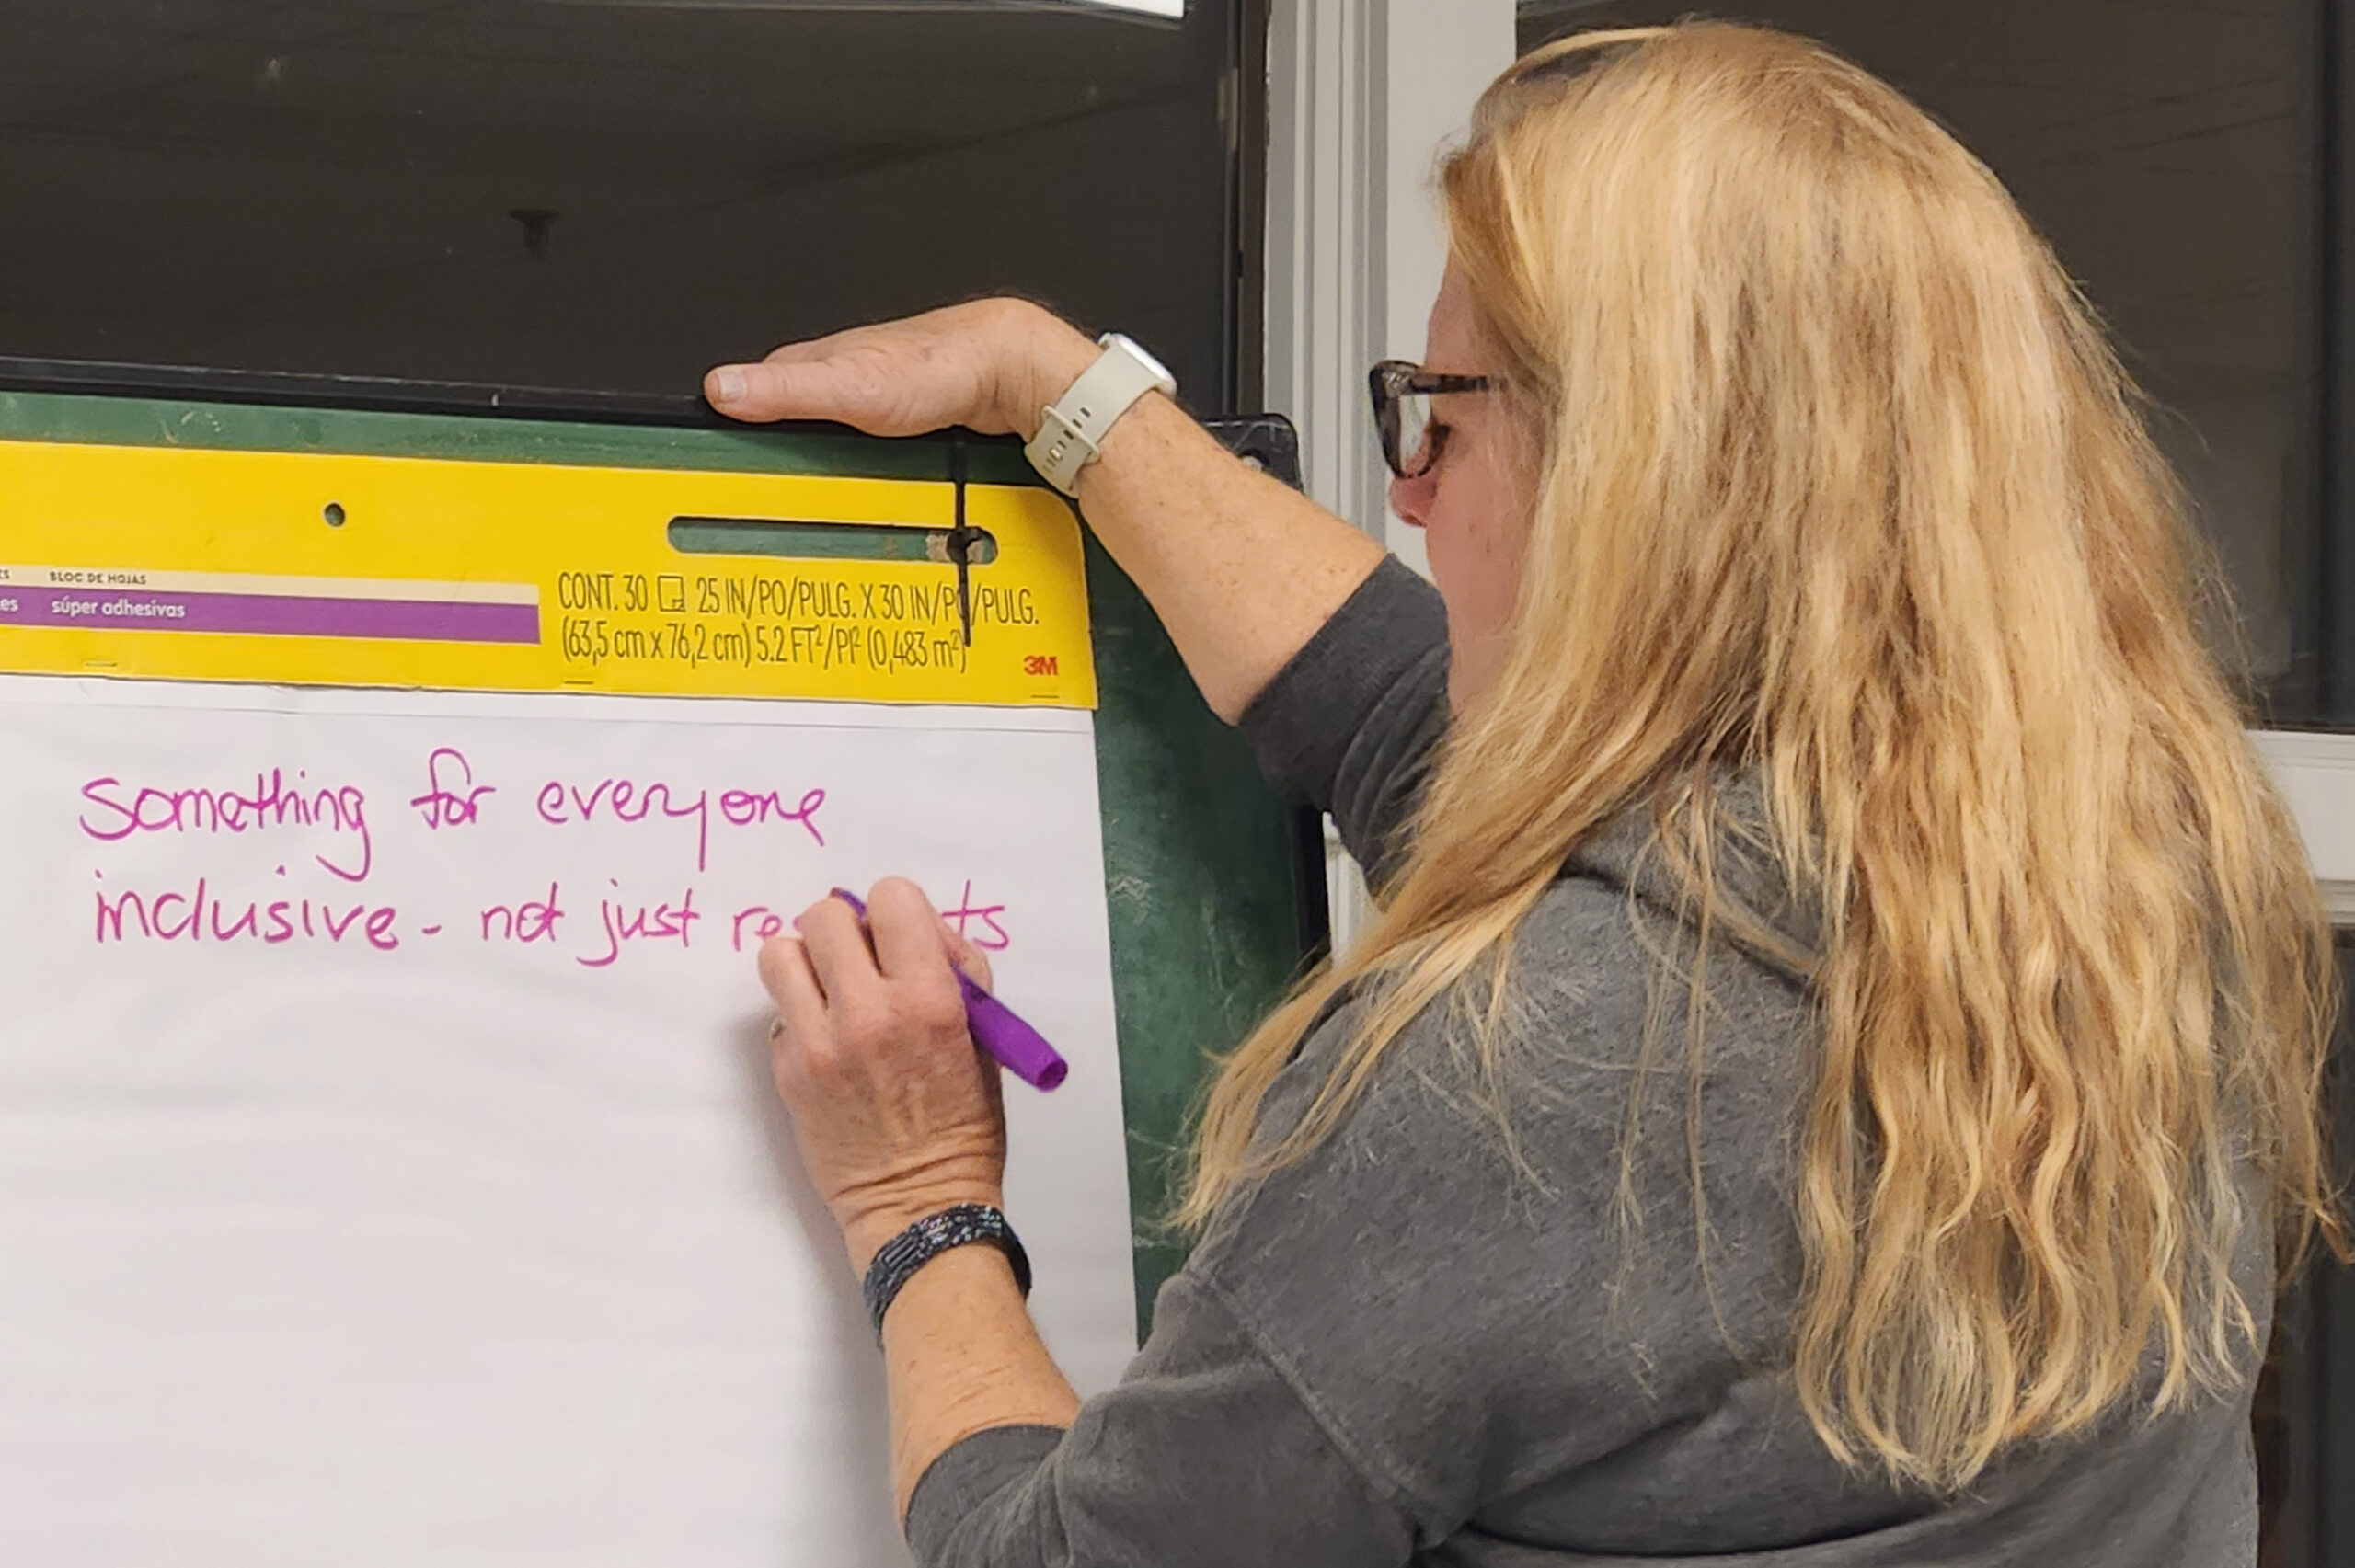 es BLOC DE HOJAS
es súper adhesivas
CONT. 30 25 IN/PO/PULG. X 30 IN/PO/PULG.
(63,5 cm x 76,2 cm) 5.2 FT²/PI² (0,483 m²)
3M
something for everyone
inclusive - not just